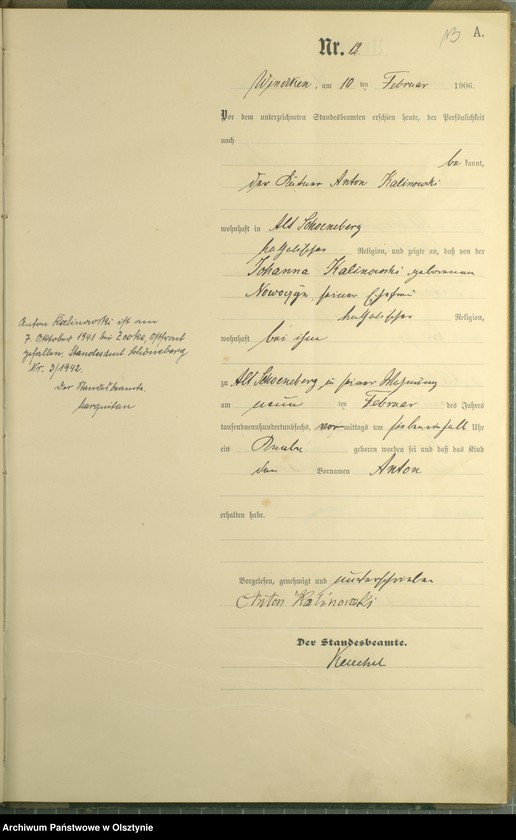 A.
Nr. 12.
am 10 ten Februar 1906.
Vor dem unterzeichneten Standesbeamten erschien heute, der Persönlichkeit
nach
be kannt,
der Anton Kalinowski
wohnhaft in Alt Schoeneberg
katholischer Religion, und zeigte an, daß von der
Johanna Kalinowski geborenen
seiner Ehefrau
katholischer Religion,
wohnhaft bei ihm
zu Alt Schoeneberg in seiner Wohnung
am neun ten Februar des Jahres
tausendneunhundertundsechs, vormittags um siebeneinhalb Uhr
ein Knabe geboren worden sei und daß das Kind
den Vornamen Anton
erhalten habe.
Vorgelesen, genehmigt und unterschrieben
Anton Kalinowski
Der Standesbeamte.
Anton Kalinowski ist am
7. Oktober 1941 bei Ostfront
gefallen. Standesamt Schöneberg
Nr. 3/1942.
Der Standesbeamte.
Archiwum Państwowe w Olsztynie